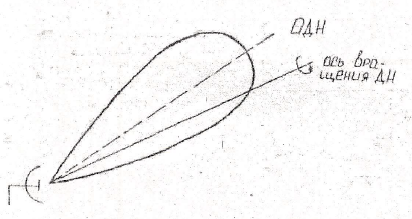 ОДН
ось вра-
щения ДН